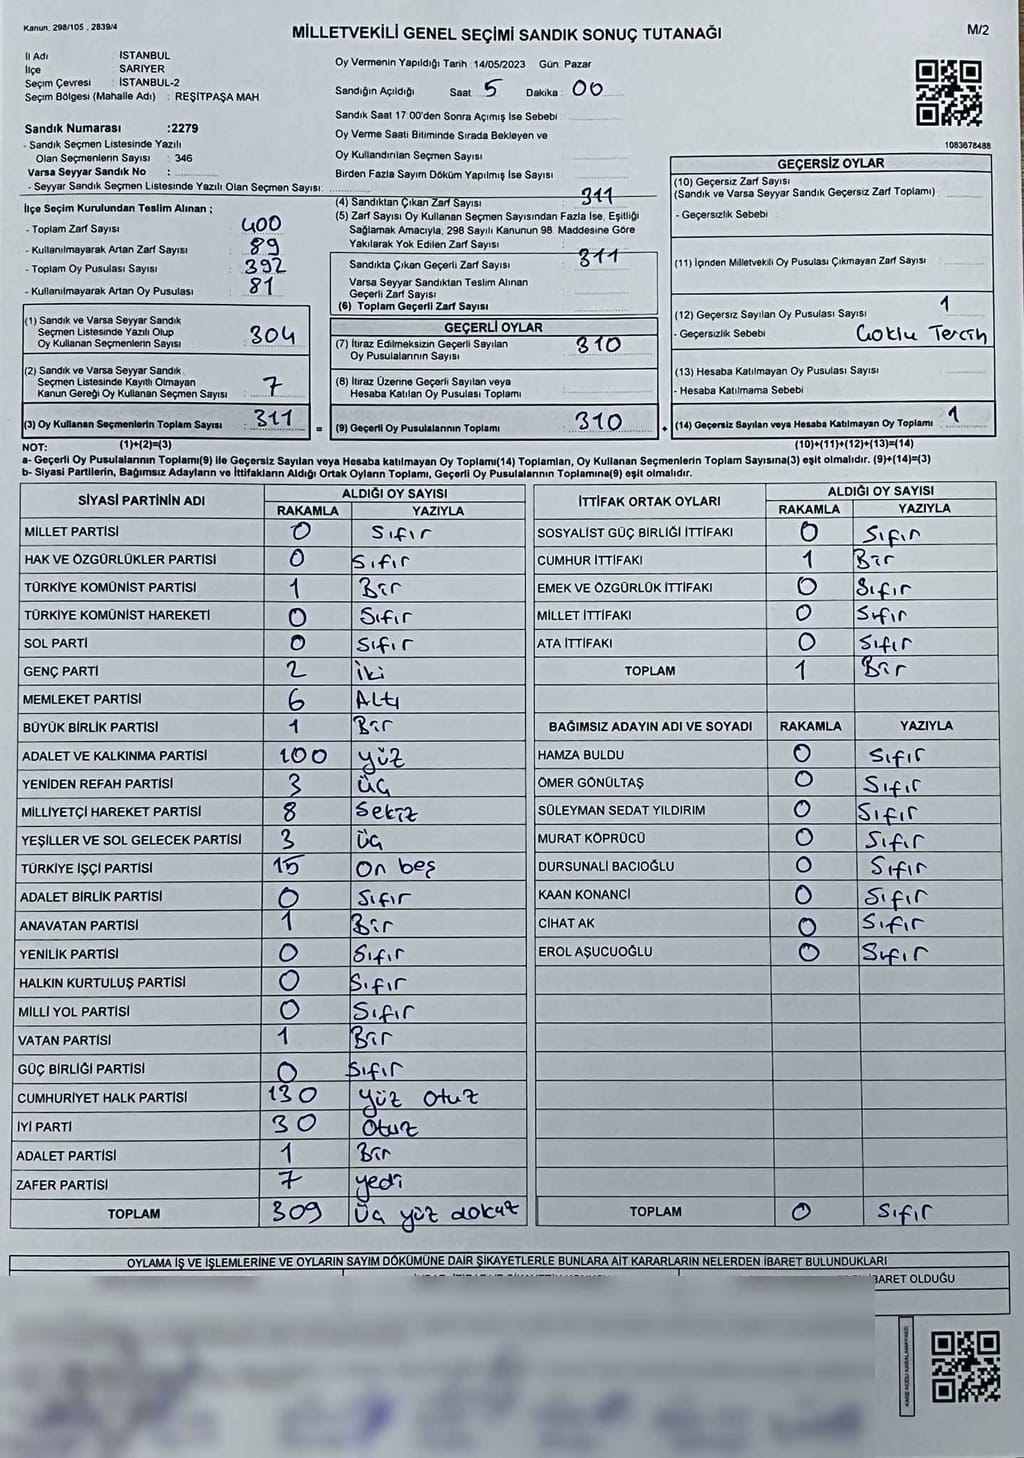 Kanun. 298/105 , 2839/4
MİLLETVEKİLİ GENEL SEÇİMİ SANDIK SONUÇ TUTANAĞI
M/2
İl Adı İSTANBUL
İlçe SARIYER
Seçim Çevresi İSTANBUL-2
Seçim Bölgesi (Mahalle Adı) : REŞİTPAŞA MAH
Sandık Numarası :2279
- Sandık Seçmen Listesinde Yazılı
Olan Seçmenlerin Sayısı : 346
Varsa Seyyar Sandık No :
- Seyyar Sandık Seçmen Listesinde Yazılı Olan Seçmen Sayısı:
Oy Vermenin Yapıldığı Tarih :14/05/2023 Gün: Pazar
Sandığın Açıldığı Saat: 5 Dakika: 00
Sandık Saat 17:00'den Sonra Açımış İse Sebebi :
Oy Verme Saati Bitiminde Sırada Bekleyen ve
Oy Kullandırılan Seçmen Sayısı
Birden Fazla Sayım Döküm Yapılmış İse Sayısı :
1083678488
İlçe Seçim Kurulundan Teslim Alınan ;
- Toplam Zarf Sayısı : 400
- Kullanılmayarak Artan Zarf Sayısı : 89
- Toplam Oy Pusulası Sayısı : 392
- Kullanılmayarak Artan Oy Pusulası : 81
(1) Sandık ve Varsa Seyyar Sandık
Seçmen Listesinde Yazılı Olup
Oy Kullanan Seçmenlerin Sayısı : 304
(2) Sandık ve Varsa Seyyar Sandık
Seçmen Listesinde Kayıtlı Olmayan
Kanun Gereği Oy Kullanan Seçmen Sayısı : 7
(3) Oy Kullanan Seçmenlerin Toplam Sayısı : 311
(4) Sandıktan Çıkan Zarf Sayısı : 311
(5) Zarf Sayısı Oy Kullanan Seçmen Sayısından Fazla İse, Eşitliği
Sağlamak Amacıyla, 298 Sayılı Kanunun 98. Maddesine Göre
Yakılarak Yok Edilen Zarf Sayısı :
Sandıkta Çıkan Geçerli Zarf Sayısı : 311
Varsa Seyyar Sandıktan Teslim Alınan
Geçerli Zarf Sayısı :
(6) Toplam Geçerli Zarf Sayısı :
GEÇERLİ OYLAR
(7) İtiraz Edilmeksizin Geçerli Sayılan
Oy Pusulalarının Sayısı : 310
(8) İtiraz Üzerine Geçerli Sayılan veya
Hesaba Katılan Oy Pusulası Toplamı :
= (9) Geçerli Oy Pusulalarının Toplamı : 310
GEÇERSİZ OYLAR
(10) Geçersiz Zarf Sayısı
(Sandık ve Varsa Seyyar Sandık Geçersiz Zarf Toplamı) :
- Geçersizlik Sebebi :
(11) İçinden Milletvekili Oy Pusulası Çıkmayan Zarf Sayısı :
(12) Geçersiz Sayılan Oy Pusulası Sayısı : 1
- Geçersizlik Sebebi : Çoklu Tercih
(13) Hesaba Katılmayan Oy Pusulası Sayısı :
- Hesaba Katılmama Sebebi :
+ (14) Geçersiz Sayılan veya Hesaba Katılmayan Oy Toplamı : 1
NOT: (1)+(2)=(3)
(10)+(11)+(12)+(13)=(14)
a- Geçerli Oy Pusulalarının Toplamı(9) ile Geçersiz Sayılan veya Hesaba katılmayan Oy Toplamı(14) Toplamları, Oy Kullanan Seçmenlerin Toplam Sayısına(3) eşit olmalıdır. (9)+(14)=(3)
b- Siyasi Partilerin, Bağımsız Adayların ve İttifakların Aldığı Ortak Oyların Toplamı, Geçerli Oy Pusulalarının Toplamına(9) eşit olmalıdır.
SİYASİ PARTİNİN ADI ALDIĞI OY SAYISI
RAKAMLA YAZIYLA
MİLLET PARTİSİ 0 Sıfır
HAK VE ÖZGÜRLÜKLER PARTİSİ 0 Sıfır
TÜRKİYE KOMÜNİST PARTİSİ 1 Bir
TÜRKİYE KOMÜNİST HAREKETİ 0 Sıfır
SOL PARTİ 0 Sıfır
GENÇ PARTİ 2 iki
MEMLEKET PARTİSİ 6 Altı
BÜYÜK BİRLİK PARTİSİ 1 Bir
ADALET VE KALKINMA PARTİSİ 100 yüz
YENİDEN REFAH PARTİSİ 3 Üç
MİLLİYETÇİ HAREKET PARTİSİ 8 Sekiz
YEŞİLLER VE SOL GELECEK PARTİSİ 3 Üç
TÜRKİYE İŞÇİ PARTİSİ 15 On beş
ADALET BİRLİK PARTİSİ 0 Sıfır
ANAVATAN PARTİSİ 1 Bir
YENİLİK PARTİSİ 0 Sıfır
HALKIN KURTULUŞ PARTİSİ 0 Sıfır
MİLLİ YOL PARTİSİ 0 Sıfır
VATAN PARTİSİ 1 Bir
GÜÇ BİRLİĞİ PARTİSİ 0 Sıfır
CUMHURİYET HALK PARTİSİ 130 yüz otuz
İYİ PARTİ 30 Otuz
ADALET PARTİSİ 1 Bir
ZAFER PARTİSİ 7 yedi
TOPLAM 309 Üç yüz dokuz
İTTİFAK ORTAK OYLARI ALDIĞI OY SAYISI
RAKAMLA YAZIYLA
SOSYALİST GÜÇ BİRLİĞİ İTTİFAKI 0 Sıfır
CUMHUR İTTİFAKI 1 Bir
EMEK VE ÖZGÜRLÜK İTTİFAKI 0 Sıfır
MİLLET İTTİFAKI 0 Sıfır
ATA İTTİFAKI 0 Sıfır
TOPLAM 1 Bir
BAĞIMSIZ ADAYIN ADI VE SOYADI RAKAMLA YAZIYLA
HAMZA BULDU 0 Sıfır
ÖMER GÖNÜLTAŞ 0 Sıfır
SÜLEYMAN SEDAT YILDIRIM 0 Sıfır
MURAT KÖPRÜCÜ 0 Sıfır
DURSUNALİ BACIOĞLU 0 Sıfır
KAAN KONANCİ 0 Sıfır
CİHAT AK 0 Sıfır
EROL AŞUCUOĞLU 0 Sıfır
TOPLAM 0 Sıfır
OYLAMA İŞ VE İŞLEMLERİNE VE OYLARIN SAYIM DÖKÜMÜNE DAİR ŞİKAYETLERLE BUNLARA AİT KARARLARIN NELERDEN İBARET BULUNDUKLARI
İBARET OLDUĞU